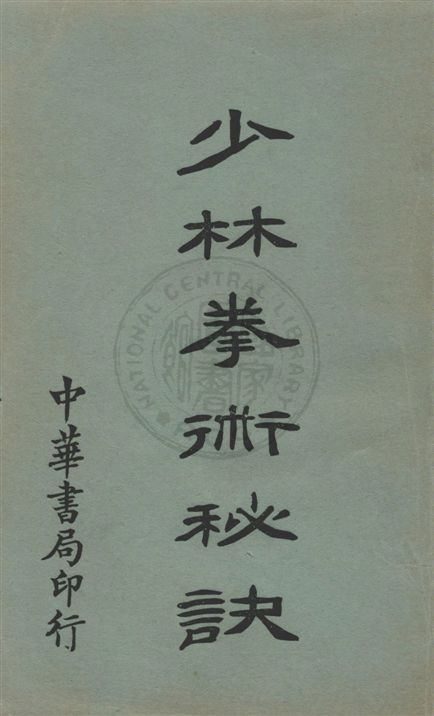 少林拳術秘訣
中華書局印行
NATIONAL CENTRAL LIBRARY